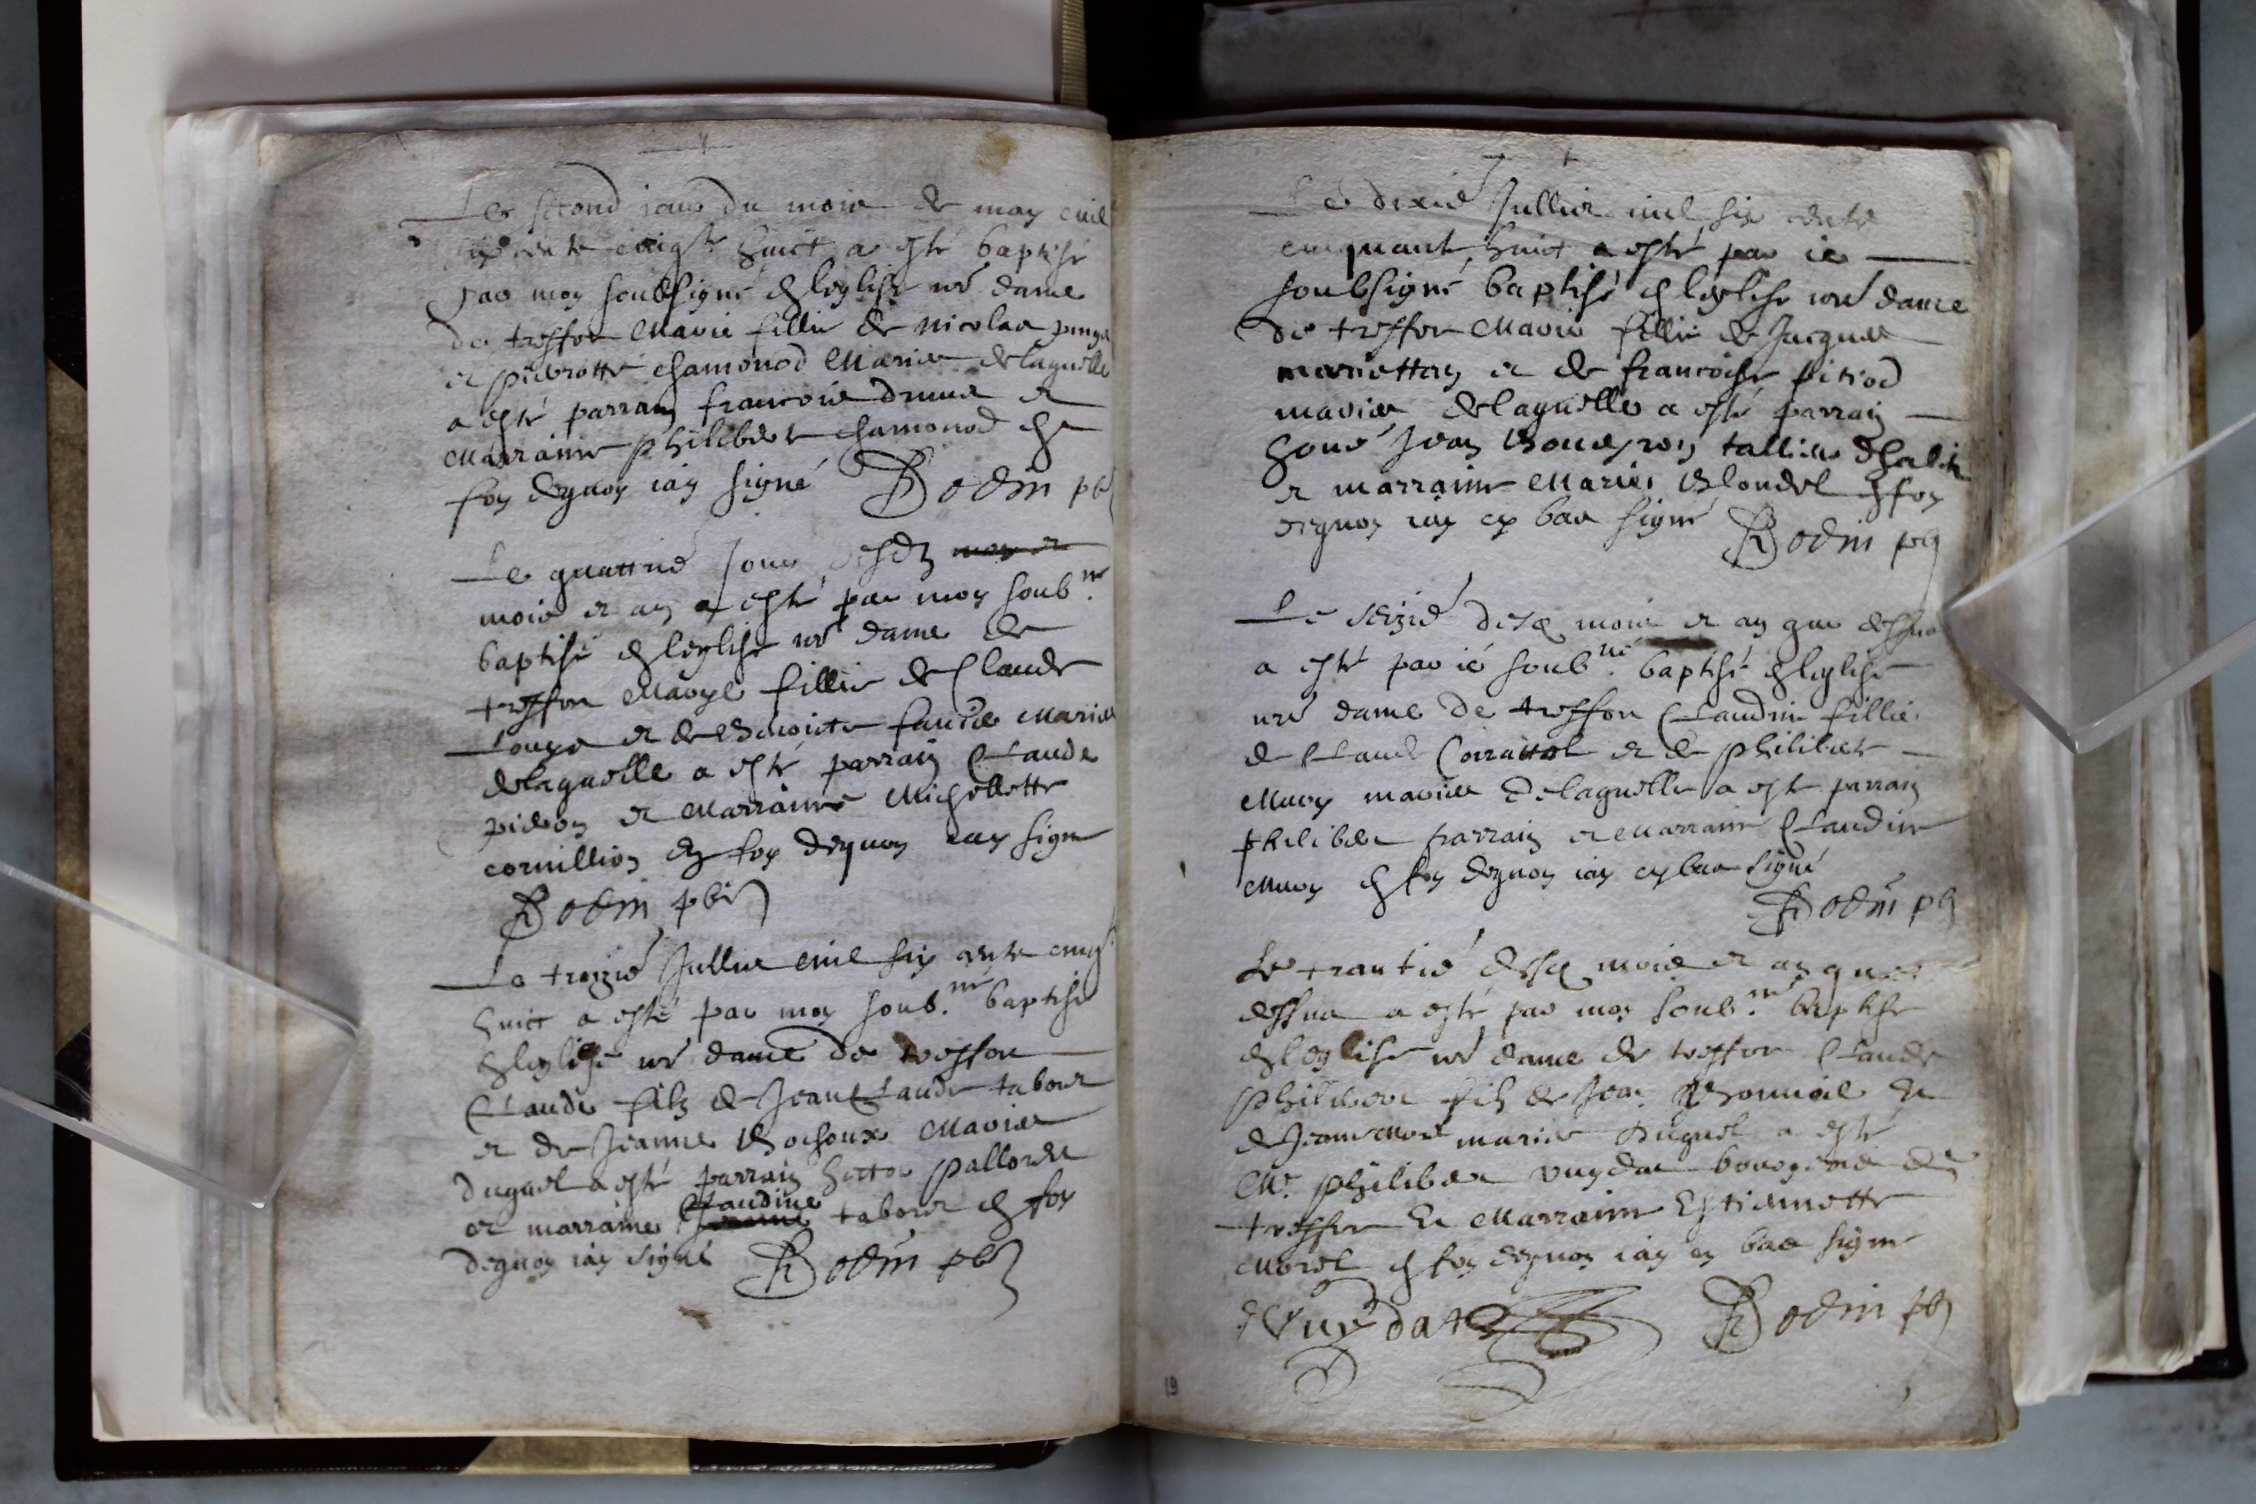 Le second iour du mois de may mil
six cents cinqte huict a esté baptisé
par moy soubsigné en leglise nre dame
de treffor Marie fillie de nicolas
et pierrotte chamonod Mariés de laquelle
a esté parrain francois et
Marraine philiberte chamonod En
foy dequoy iay signé Bodin pbr
Le quattrié Jour desdz may et
mois et an a esté par moy soub.né
baptisé en leglise nre dame de
treffor Marye fillie de Claude
et de Benoiste Mariés
delaquelle a esté parrain Claude
et Marraine Michellette
cornillion en foy dequoy iay signé
Bodin pbr
Le troizié Jullier mil six cents cinqt
huict a esté par moy soub.né baptisé
en leglise nre dame de treffor
Claude filz de Jean Claude tabour
et de Jeanne Bochoux Mariés
duquel a esté parrain hector pallordet
et marraine Claudine tabour en foy
dequoy iay signé Bodin pbr
Le dixié Jullier mil six cents
cinquante huict a esté par ie
soubsigné baptisé en leglise nre dame
de treffor Marie fillie de Jacques
mariettan et de francoise pitiod
mariés delaquelle a esté parrain
hone Jean tallieur dhabitz
et marraine Marie Blondel en foy
dequoy iay cy bas signé Bodin pbr
Le seizié desd mois et an que dessus
a esté par ié soub.né baptisé en leglise
nre dame de treffor Claudine fillie
de Claude et de philiberte
Muoy mariés delaquelle a esté parrain
philiber parrain et Marraine Claudine
Muoy en foy dequoy iay cy bas signé
Bodin pbr
Le trantié desd mois et an que
dessus a esté par moy soub.né baptisé
en leglise nre dame de treffor Claude
philibert filz de Jean Et
de Jeanne Morel mariés duquel a esté
Me. philiber vuydat bourgeois de
treffor Et Marraine Estiennette
Morel en foy dequoy iay cy bas signé
Vuydat Bodin pbr
19